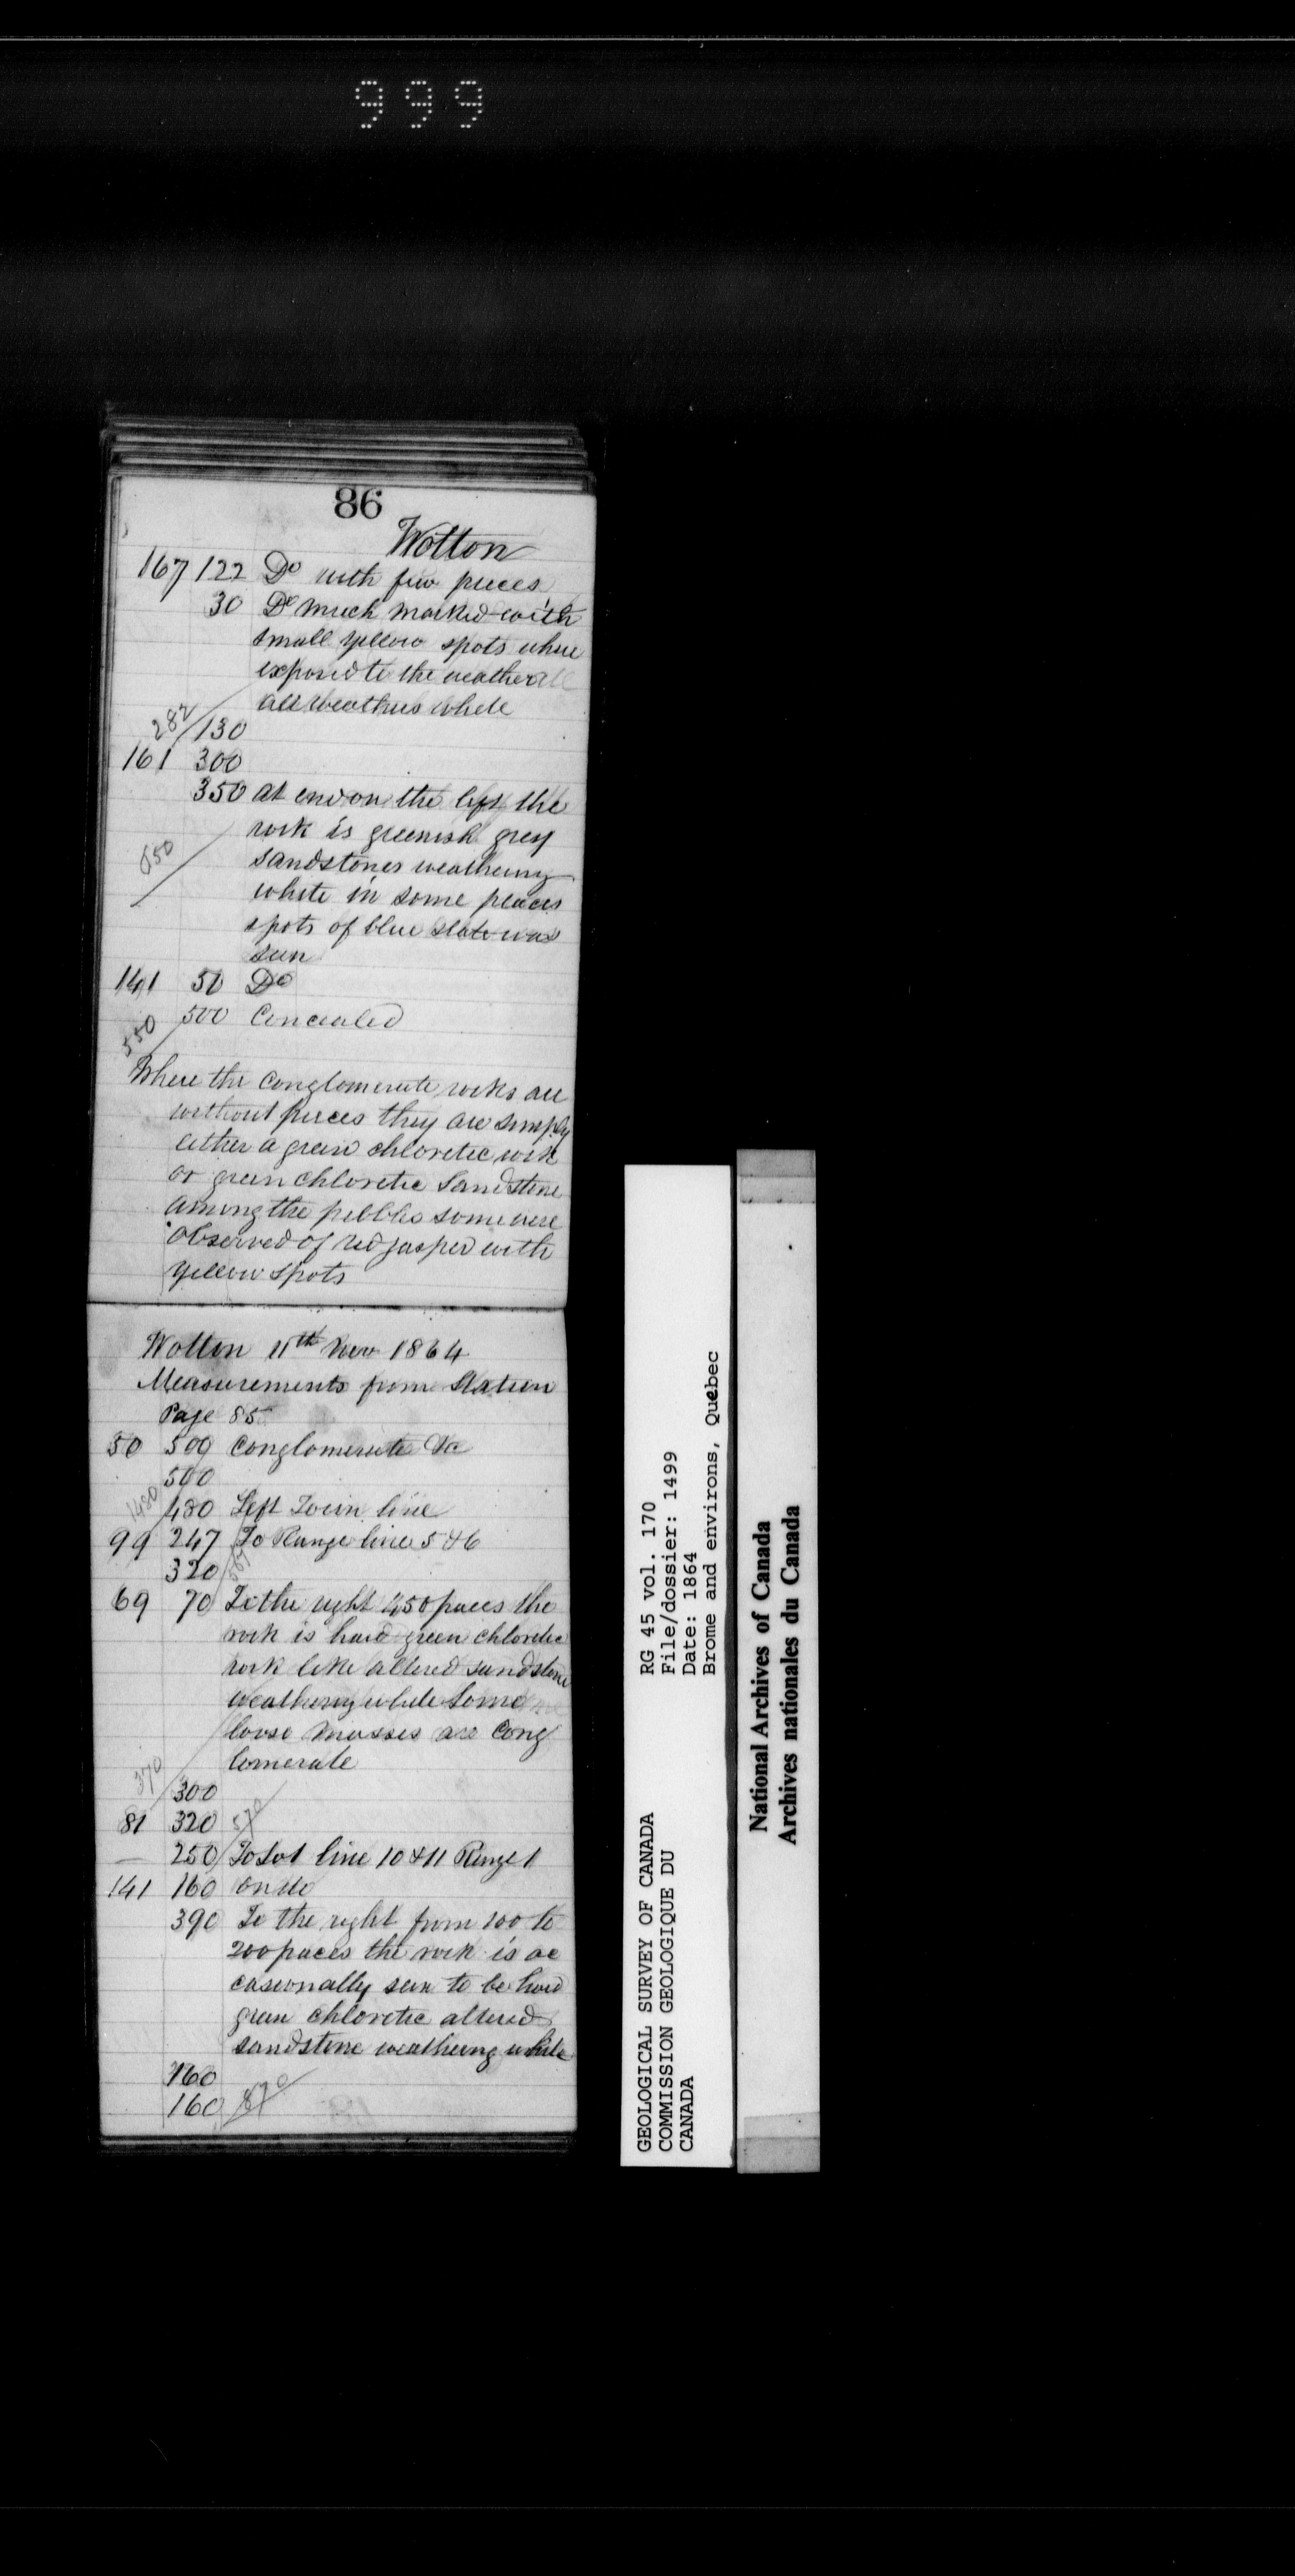 999
86
Wotton
167 122 Do with few pieces
30 Do much marked with
small yellow spots where
exposed to the weather
all weathers white
282
130
161 300
350 at end on the left the
rock is greenish grey
650
sandstones weathering
white in some places
spots of blue slate was
seen
141 50 Do
500 Concealed
550
Where the conglomerate rocks are
without pieces they are simply
either a green chloretic rock
or green chloretic Sandstone
among the pebbles some were
observed of red jasper with
yellow spots
Wotton 11th Nov 1864
Measurements from Station
Page 85
50 500 Conglomerate &c
500
1480
480 Left Town line
99 247 To Range line 5 & 6
320 567
69 70 To the right 450 paces the
rock is hard green chloretic
rock like altered sandstone
weathering white Some
loose masses are Cong
lomerate
370
300
81 320 570
— 250 To Lot line 10 & 11 Range 1
141 160 on do
390 To the right from 100 to
200 paces the rock is oc
casionally seen to be hard
green chloretic altered
sandstone weathering white
160
160 870
GEOLOGICAL SURVEY OF CANADA
COMMISSION GEOLOGIQUE DU
CANADA
RG 45 vol. 170
File/dossier: 1499
Date: 1864
Brome and environs, Quebec
National Archives of Canada
Archives nationales du Canada